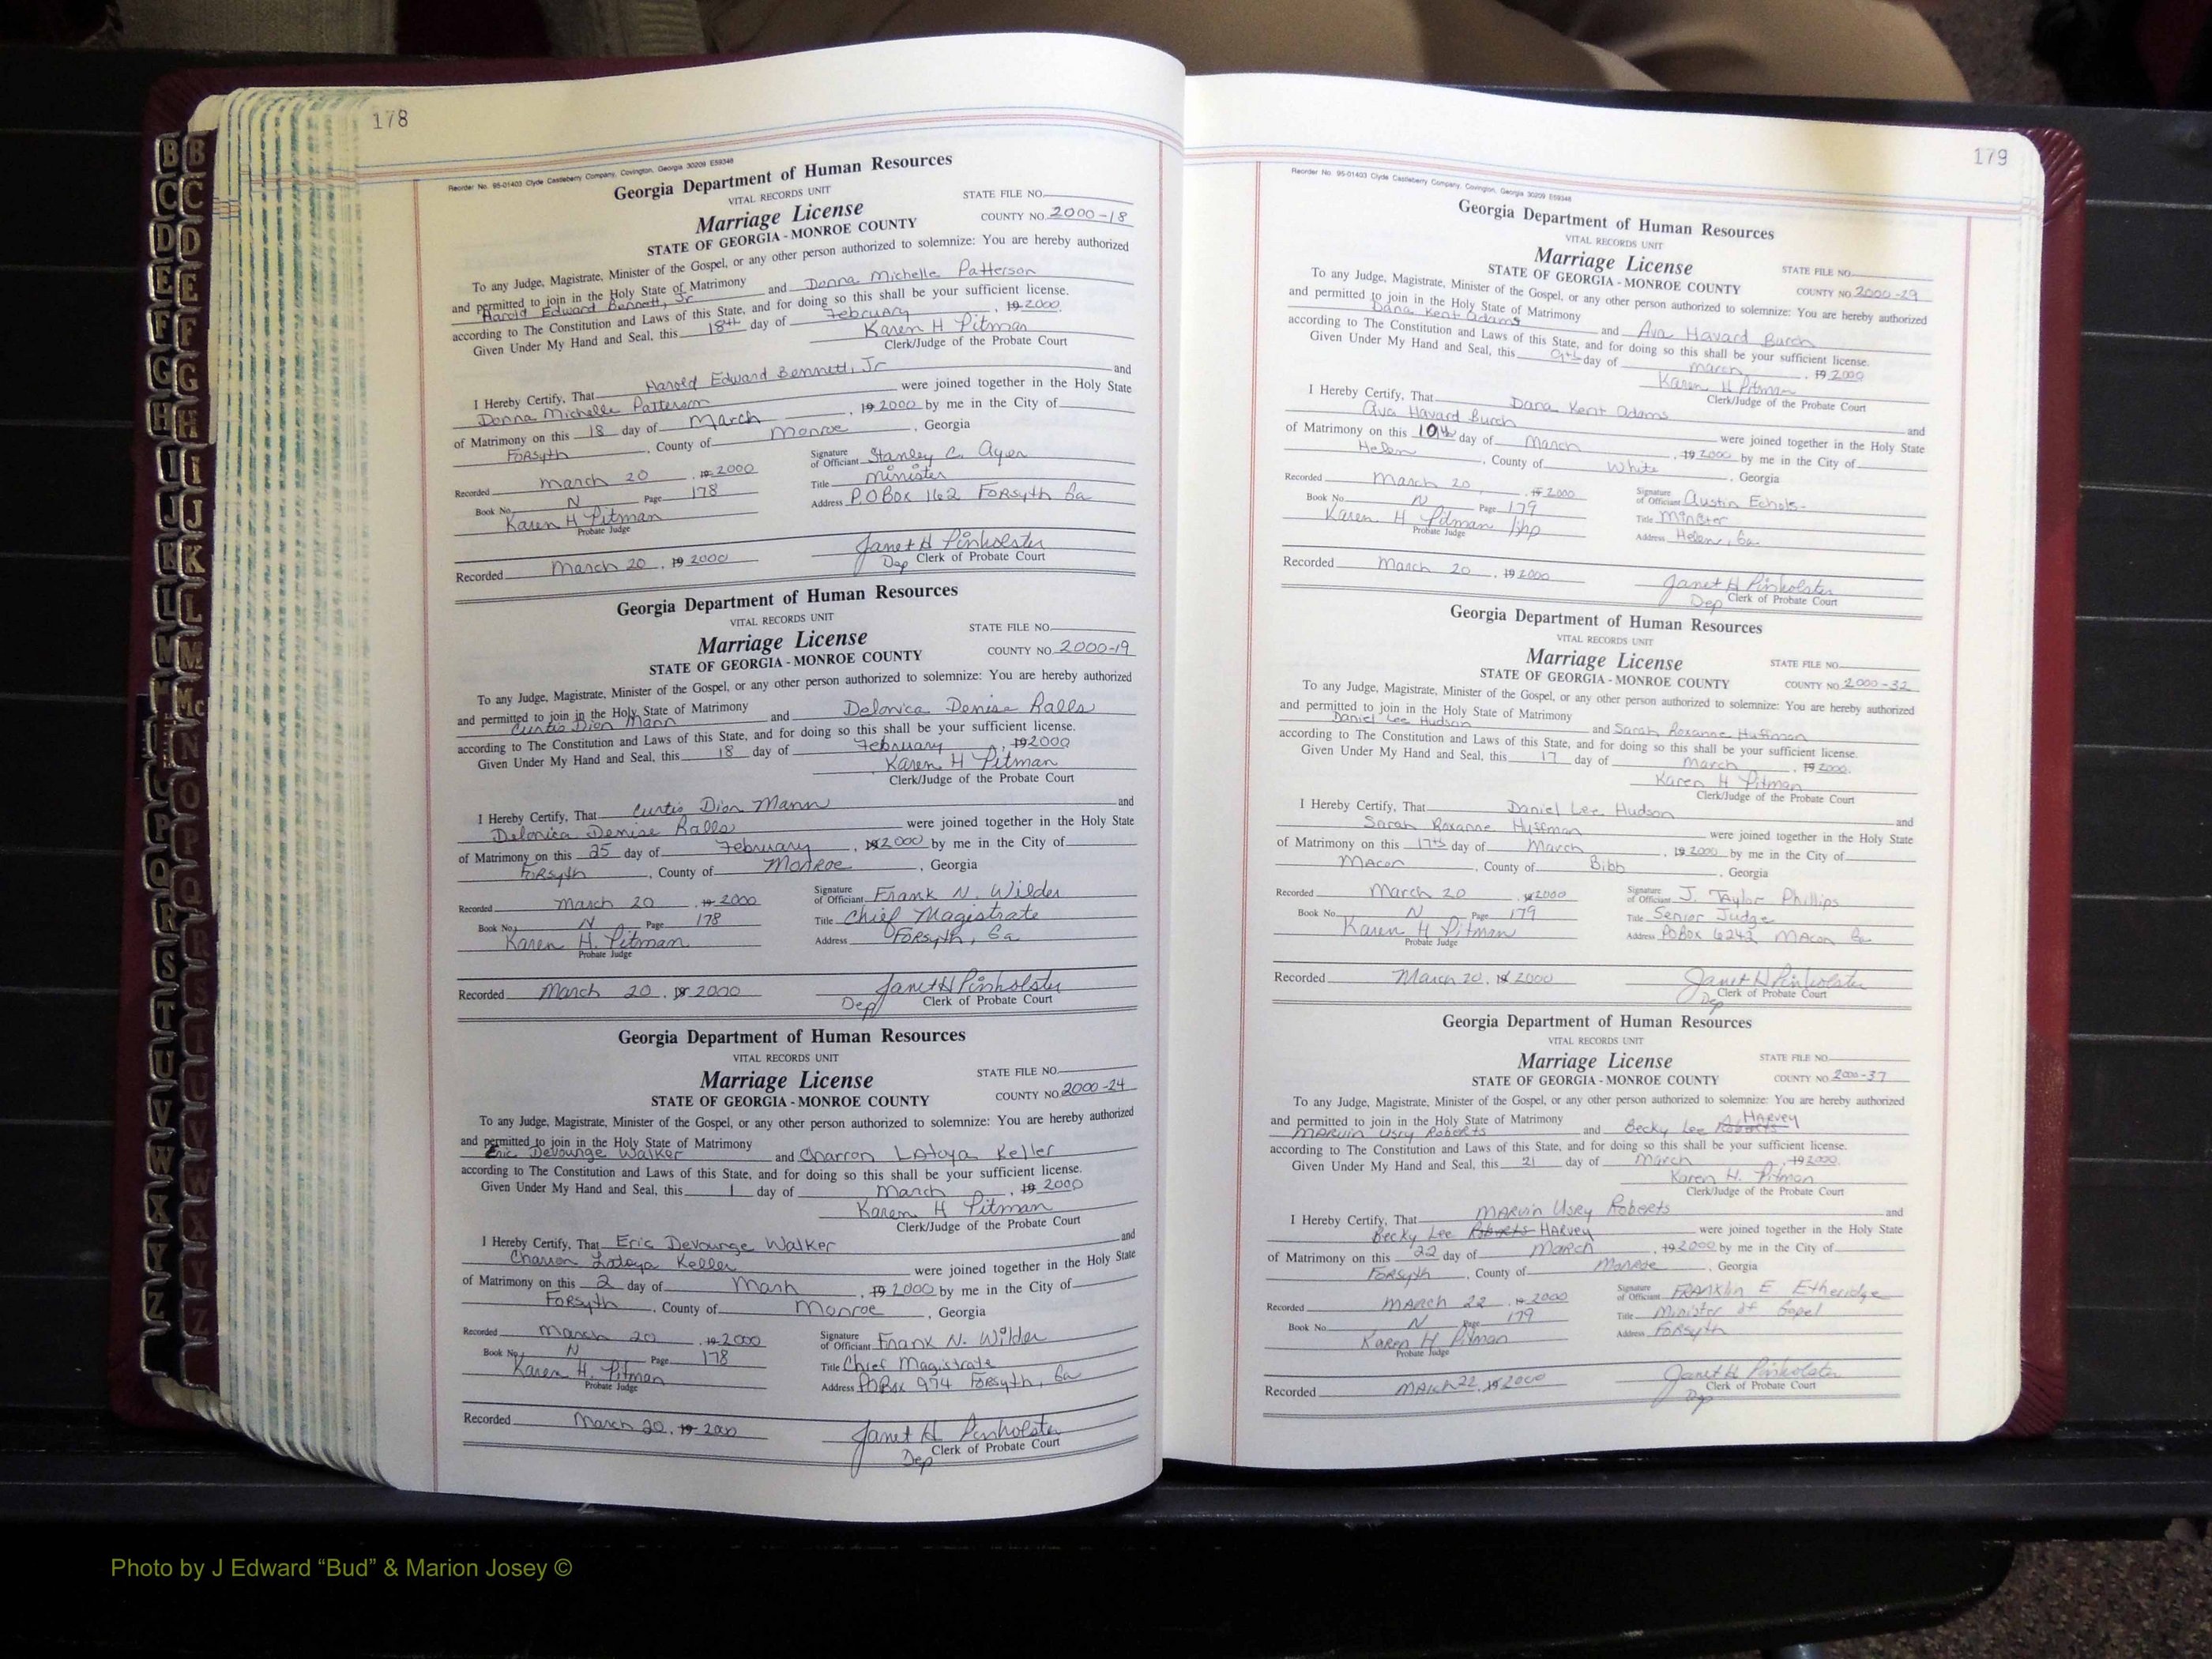 178
Reorder No. 95-01403 Clyde Castleberry Company, Covington, Georgia 30209 E59348
Georgia Department of Human Resources
VITAL RECORDS UNIT
Marriage License
STATE FILE NO.
STATE OF GEORGIA - MONROE COUNTY
COUNTY NO. 2000-18
To any Judge, Magistrate, Minister of the Gospel, or any other person authorized to solemnize: You are hereby authorized
and permitted to join in the Holy State of Matrimony
Harold Edward Bennett, Jr and Donna Michelle Patterson
according to The Constitution and Laws of this State, and for doing so this shall be your sufficient license.
Given Under My Hand and Seal, this 18th day of February, 19 2000.
Karen H Pitman
Clerk/Judge of the Probate Court
I Hereby Certify, That Harold Edward Bennett, Jr and
Donna Michelle Patterson were joined together in the Holy State
of Matrimony on this 18 day of March, 19 2000 by me in the City of
Forsyth, County of Monroe, Georgia
Recorded March 20, 19 2000
Signature of Officiant Stanley C. Ayer
Book No. N Page 178
Title minister
Karen H Pitman
Address P.O Box 162 Forsyth Ga
Probate Judge
Janet H Pinholster
Recorded March 20, 19 2000
Dep Clerk of Probate Court
Georgia Department of Human Resources
VITAL RECORDS UNIT
Marriage License
STATE FILE NO.
STATE OF GEORGIA - MONROE COUNTY
COUNTY NO. 2000-19
To any Judge, Magistrate, Minister of the Gospel, or any other person authorized to solemnize: You are hereby authorized
and permitted to join in the Holy State of Matrimony
Curtis Dion Mann and Delonica Denise Ralls
according to The Constitution and Laws of this State, and for doing so this shall be your sufficient license.
Given Under My Hand and Seal, this 18 day of February, 19 2000
Karen H Pitman
Clerk/Judge of the Probate Court
I Hereby Certify, That Curtis Dion Mann and
Delonica Denise Ralls were joined together in the Holy State
of Matrimony on this 25 day of February, 19 2000 by me in the City of
Forsyth, County of Monroe, Georgia
Recorded March 20, 19 2000
Signature of Officiant Frank N. Wilder
Book No. N Page 178
Title Chief Magistrate
Karen H. Pitman
Address Forsyth, Ga
Probate Judge
Janet H Pinholster
Recorded March 20, 19 2000
Dep Clerk of Probate Court
Georgia Department of Human Resources
VITAL RECORDS UNIT
Marriage License
STATE FILE NO.
STATE OF GEORGIA - MONROE COUNTY
COUNTY NO. 2000-24
To any Judge, Magistrate, Minister of the Gospel, or any other person authorized to solemnize: You are hereby authorized
and permitted to join in the Holy State of Matrimony
Eric Devounge Walker and Charron LAtoya Keller
according to The Constitution and Laws of this State, and for doing so this shall be your sufficient license.
Given Under My Hand and Seal, this 1 day of March, 19 2000
Karen H Pitman
Clerk/Judge of the Probate Court
I Hereby Certify, That Eric Devounge Walker and
Charron Latoya Keller were joined together in the Holy State
of Matrimony on this 2 day of Marh, 19 2000 by me in the City of
Forsyth, County of Monroe, Georgia
Recorded March 20, 19 2000
Signature of Officiant Frank N. Wilder
Book No. N Page 178
Title Chief Magistrate
Karen H. Pitman
Address PO Box 974 Forsyth, Ga
Probate Judge
Janet H Pinholster
Recorded March 20, 19 2000
Dep Clerk of Probate Court
179
Reorder No. 95-01403 Clyde Castleberry Company, Covington, Georgia 30209 E59348
Georgia Department of Human Resources
VITAL RECORDS UNIT
Marriage License
STATE FILE NO.
STATE OF GEORGIA - MONROE COUNTY
COUNTY NO. 2000-29
To any Judge, Magistrate, Minister of the Gospel, or any other person authorized to solemnize: You are hereby authorized
and permitted to join in the Holy State of Matrimony
Dana Kent Adams and Ava Havard Burch
according to The Constitution and Laws of this State, and for doing so this shall be your sufficient license.
Given Under My Hand and Seal, this 9th day of March, 19 2000
Karen H Pitman
Clerk/Judge of the Probate Court
I Hereby Certify, That Dana Kent Adams and
Ava Havard Burch were joined together in the Holy State
of Matrimony on this 10th day of March, 19 2000 by me in the City of
Helen, County of White, Georgia
Recorded March 20, 19 2000
Signature of Officiant Austin Echols
Book No. N Page 179
Title Minster
Karen H Pitman
Address Helen, Ga
Probate Judge
Janet H Pinholster
Recorded March 20, 19 2000
Dep Clerk of Probate Court
Georgia Department of Human Resources
VITAL RECORDS UNIT
Marriage License
STATE FILE NO.
STATE OF GEORGIA - MONROE COUNTY
COUNTY NO. 2000-32
To any Judge, Magistrate, Minister of the Gospel, or any other person authorized to solemnize: You are hereby authorized
and permitted to join in the Holy State of Matrimony
Daniel Lee Hudson and Sarah Roxanne Huffman
according to The Constitution and Laws of this State, and for doing so this shall be your sufficient license.
Given Under My Hand and Seal, this 17 day of March, 19 2000.
Karen H Pitman
Clerk/Judge of the Probate Court
I Hereby Certify, That Daniel Lee Hudson and
Sarah Roxanne Huffman were joined together in the Holy State
of Matrimony on this 17th day of March, 19 2000 by me in the City of
Macon, County of Bibb, Georgia
Recorded March 20, 19 2000
Signature of Officiant J. Taylor Phillips
Book No. N Page 179
Title Senior Judge
Karen H Pitman
Address PO Box 6242 Macon Ga
Probate Judge
Janet H Pinholster
Recorded March 20, 19 2000
Dep Clerk of Probate Court
Georgia Department of Human Resources
VITAL RECORDS UNIT
Marriage License
STATE FILE NO.
STATE OF GEORGIA - MONROE COUNTY
COUNTY NO. 2000-37
To any Judge, Magistrate, Minister of the Gospel, or any other person authorized to solemnize: You are hereby authorized
and permitted to join in the Holy State of Matrimony HARVEY
MARVIN Usry Roberts and Becky Lee Roberts
according to The Constitution and Laws of this State, and for doing so this shall be your sufficient license.
Given Under My Hand and Seal, this 21 day of March, 19 2000.
Karen H. Pitman
Clerk/Judge of the Probate Court
I Hereby Certify, That MARVIN Usry Roberts and
Becky Lee Roberts HARVEY were joined together in the Holy State
of Matrimony on this 22 day of March, 19 2000 by me in the City of
Forsyth, County of Monroe, Georgia
Recorded MARCH 22, 19 2000
Signature of Officiant FRANKlin E Etheridge
Book No. N Page 179
Title Minister of Gopel
Karen H Pitman
Address Forsyth
Probate Judge
Janet H Pinholster
Recorded MARCH 22, 19 2000
Dep Clerk of Probate Court
B B
C C
D D
E E
F F
G G
H H
I I
J J
K K
L L
M M
Mc
N
O
P P
Q Q
R R
S S
T T
U U
V V
W W
X X
Y Y
Z Z
Photo by J Edward “Bud” & Marion Josey ©